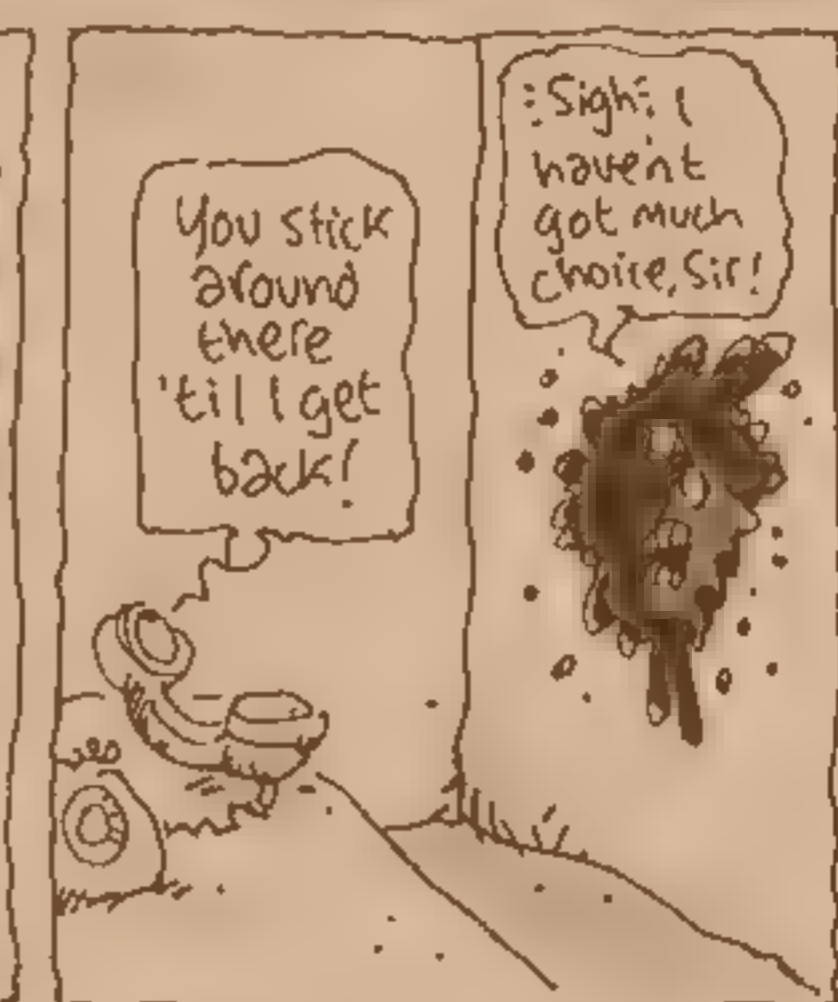 You stick
around
there
'til I get
back!
:Sigh: I
haven't
got much
choice, Sir!